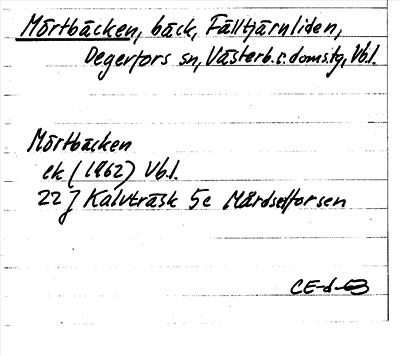 Mörtbäcken, bäck, Fälltjärnliden,
Degerfors sn, Västerb.s.domstg, Vb.l.
Mörtbäcken
ek (1962) Vb.l.
22J Kalvträsk 5e Mårdselforsen